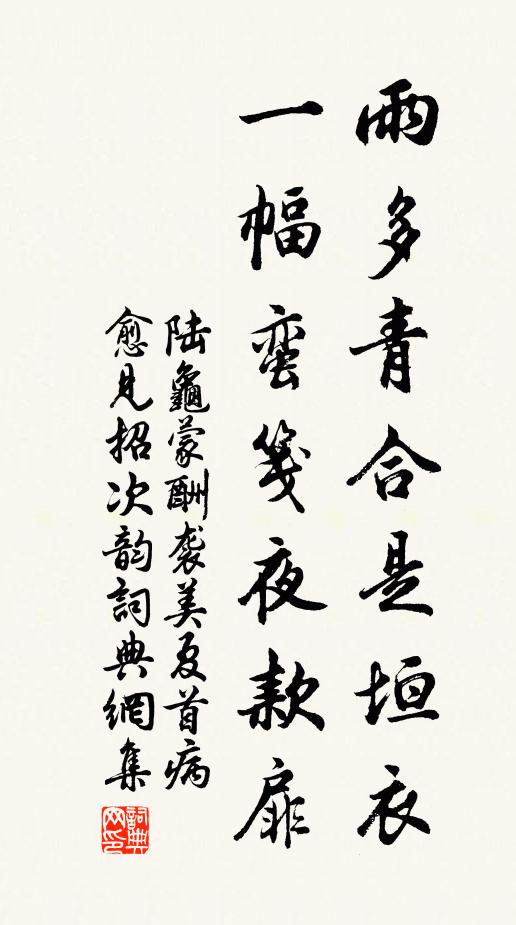 雨多青合是垣衣
一幅蛮笺夜款扉
陆龜蒙酬袭美夏首病
愈見招次韵詞典網集
詞典网印